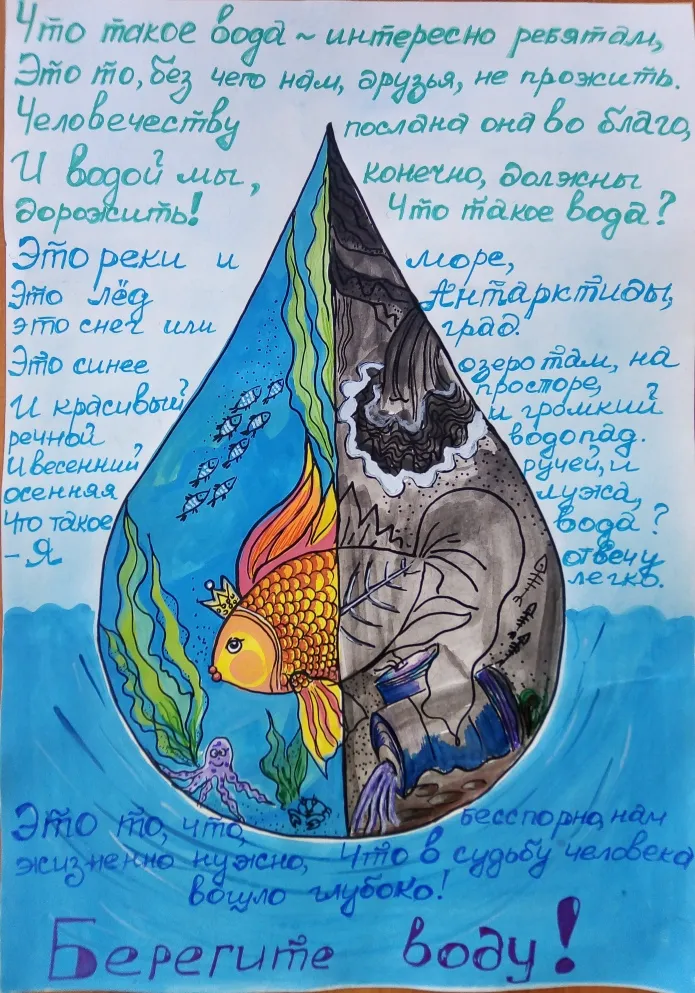 Что такое вода ~ интересно ребятам,
Это то, без чего нам, друзья, не прожить.
Человечеству послана она во благо,
И водой мы, конечно, должны
дорожить! Что такое вода?
Это реки и море,
Это лёд Антарктиды,
это снег или град.
Это синее озеро там, на
просторе,
И красивый и громкий
речной водопад.
И весенний ручей, и
осенняя лужа,
Что такое вода?
- Я отвечу
легко.
Это то, что, бесспорно, нам
жизненно нужно, Что в судьбу человека
вошло глубоко!
Берегите воду!